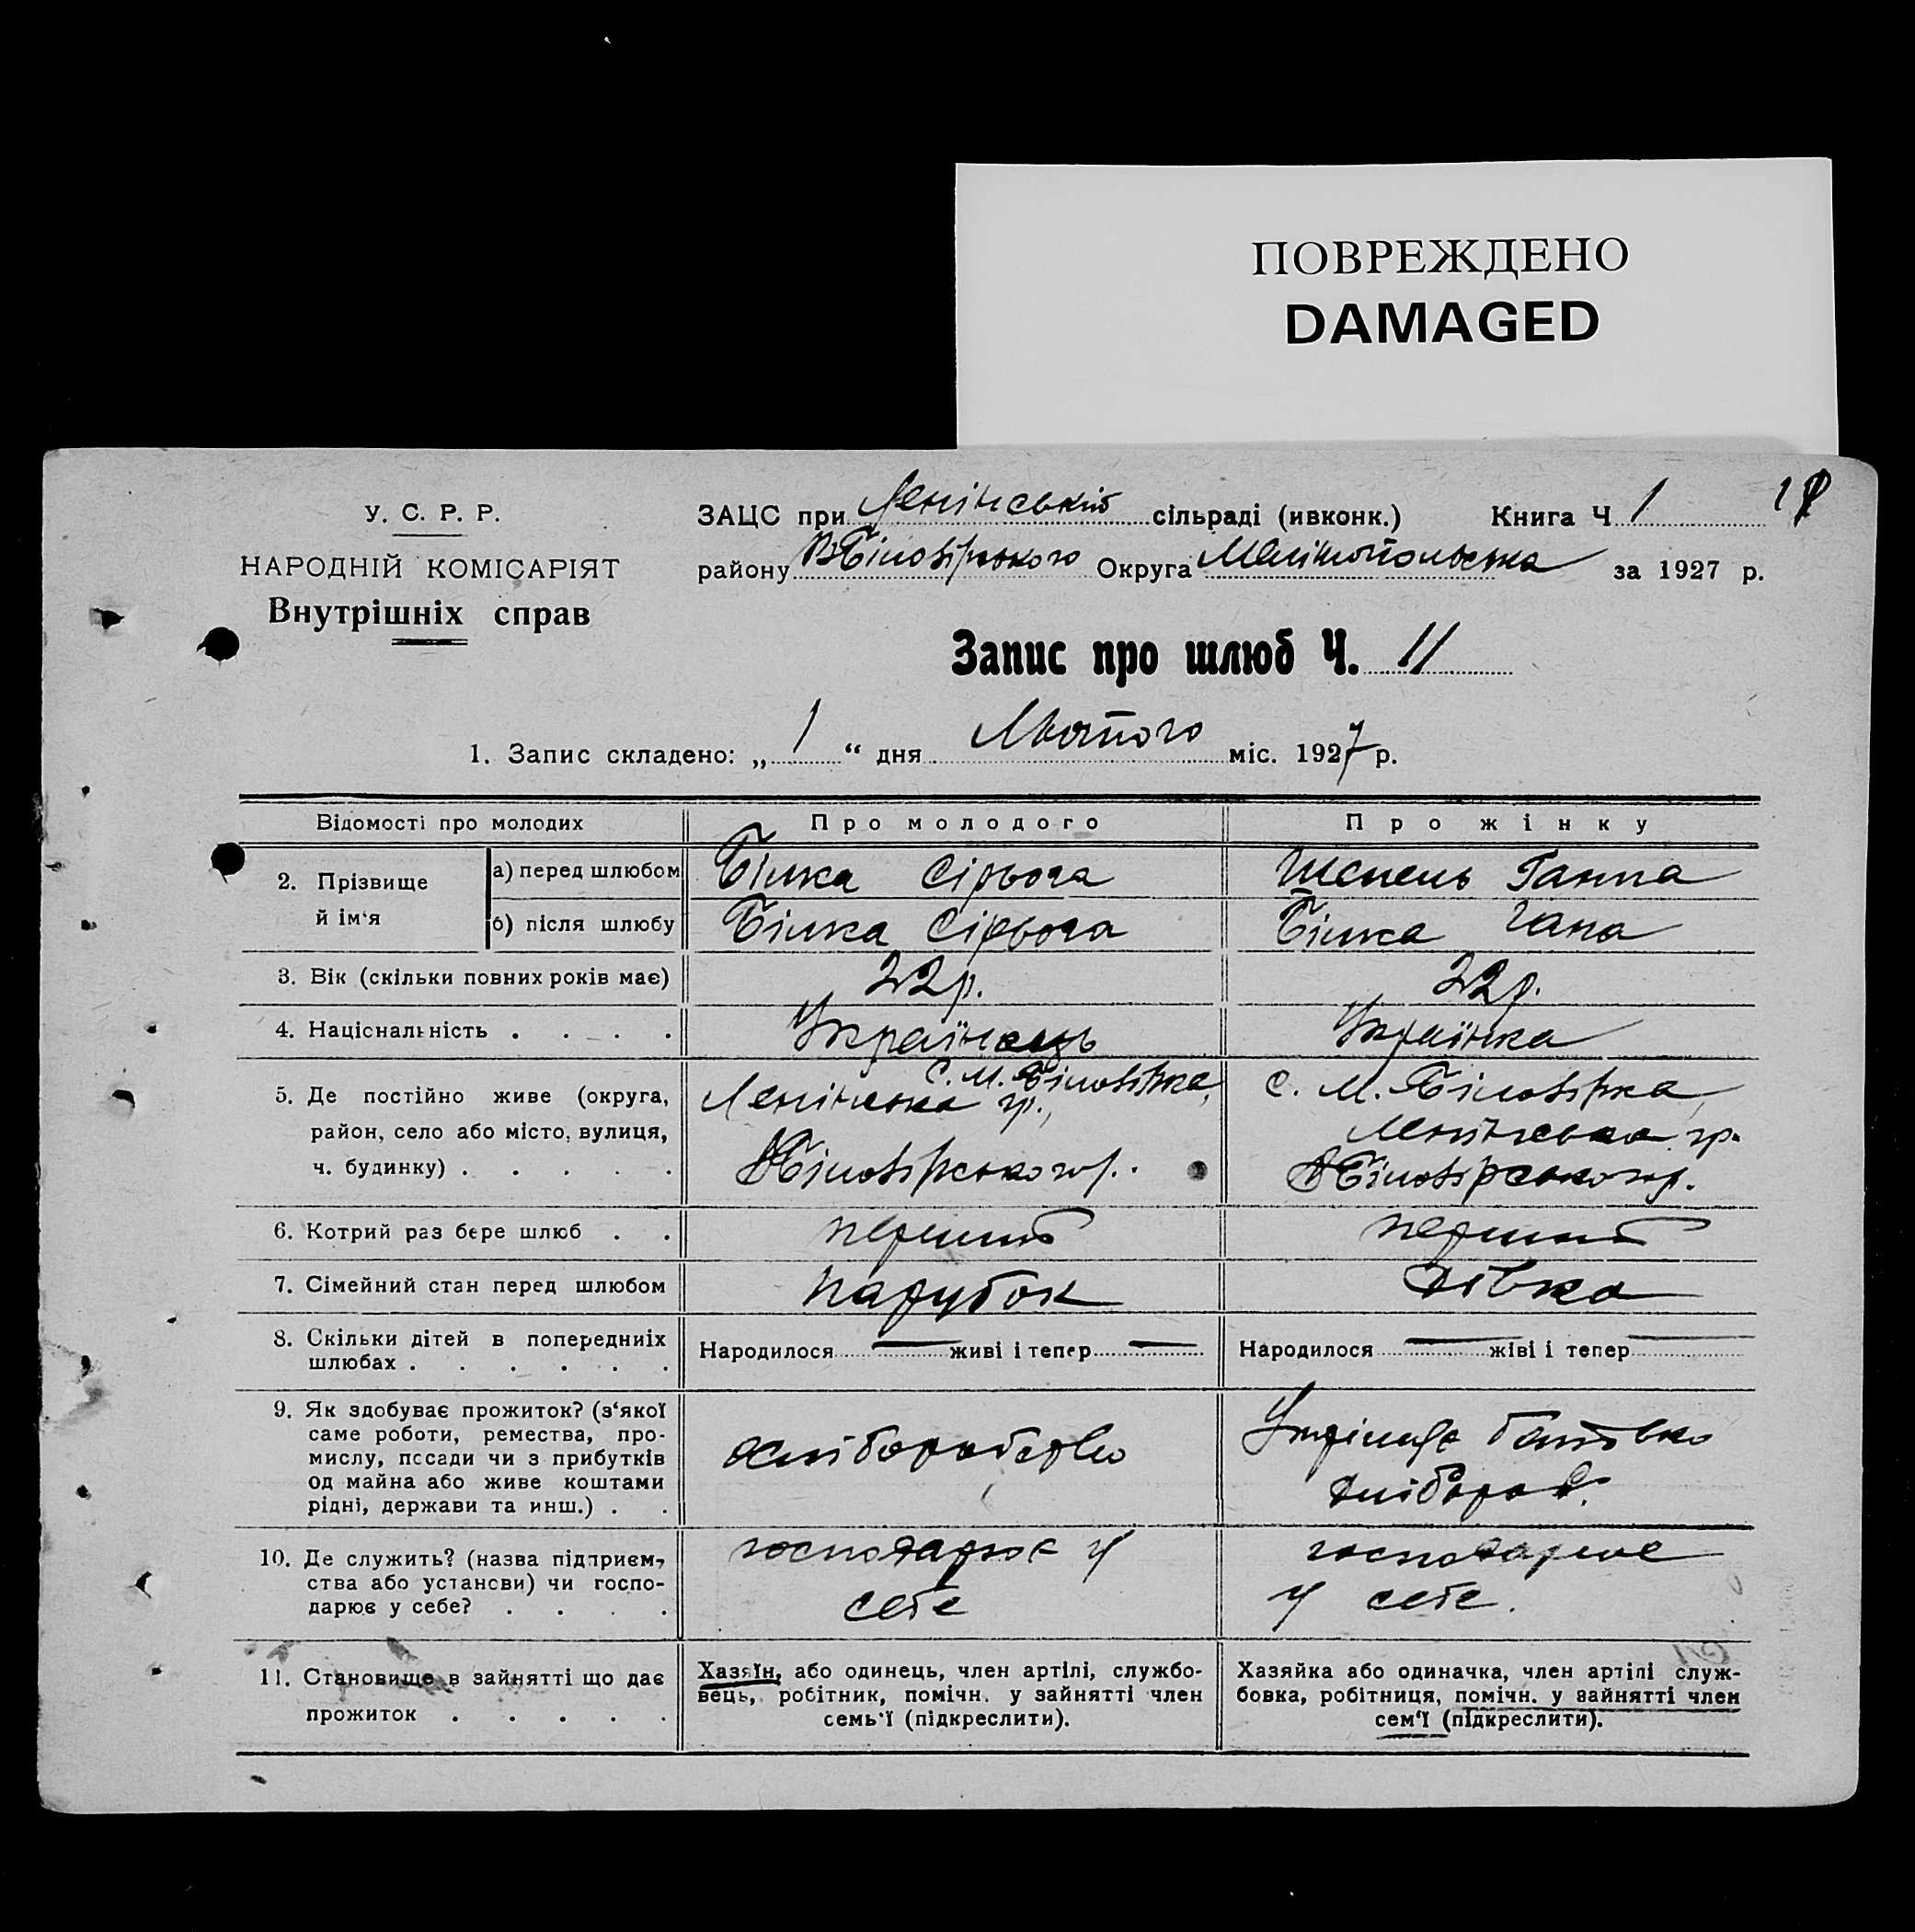 ПОВРЕЖДЕНО
DAMAGED
У. С. Р. Р.
НАРОДНІЙ КОМІСАРІЯТ
Внутрішніх справ
ЗАЦС при Ленінській сільраді (ивконк.) Книга Ч 1
району В Білозірського Округа Мелітопольська за 1927 р.
Запис про шлюб Ч. 11
1. Запис складено: „ 1 “ дня Лютого міс. 1927 р.
Відомості про молодих Про молодого Про жінку
2. Прізвище й ім‘я
а) перед шлюбом Білка Сірьога Шепель Ганна
б) після шлюбу Білка Сірьога Білка Гана
3. Вік (скільки повних років має) 22 р. 22 р.
4. Національність . . . . Українець Українка
5. Де постійно живе (округа,
район, село або місто, вулиця,
ч. будинку) . . . . .
С. М. Білозірка,
Ленінська гр.,
ВБілозірського р.
С. М. Білозірка,
Ленінська гр.
ВБілозірського р.
6. Котрий раз бере шлюб . . перший перший
7. Сімейний стан перед шлюбом парубок дівка
8. Скільки дітей в попередниіх
шлюбах . . . . . .
Народилося — живі і тепер —
Народилося — жіві і тепер —
9. Як здобуває прожиток? (з‘якої
саме роботи, ремества, про-
мислу, посади чи з прибутків
од майна або живе коштами
рідні, держави та инш.) . .
хліборобство
Утрімує батько
хлібороб.
10. Де служить? (назва підприєм-
ства або установи) чи госпо-
дарює у себе? . . . .
господарює у
себе
господарює
у себе.
11. Становище в зайнятті що дає
прожиток . . . . .
Хазяїн, або одинець, член артілі, службо-
вець, робітник, помічн. у зайнятті член
семь‘ї (підкреслити).
Хазяйка або одиначка, член артілі служ-
бовка, робітниця, помічн. у зайнятті член
сем‘ї (підкреслити).